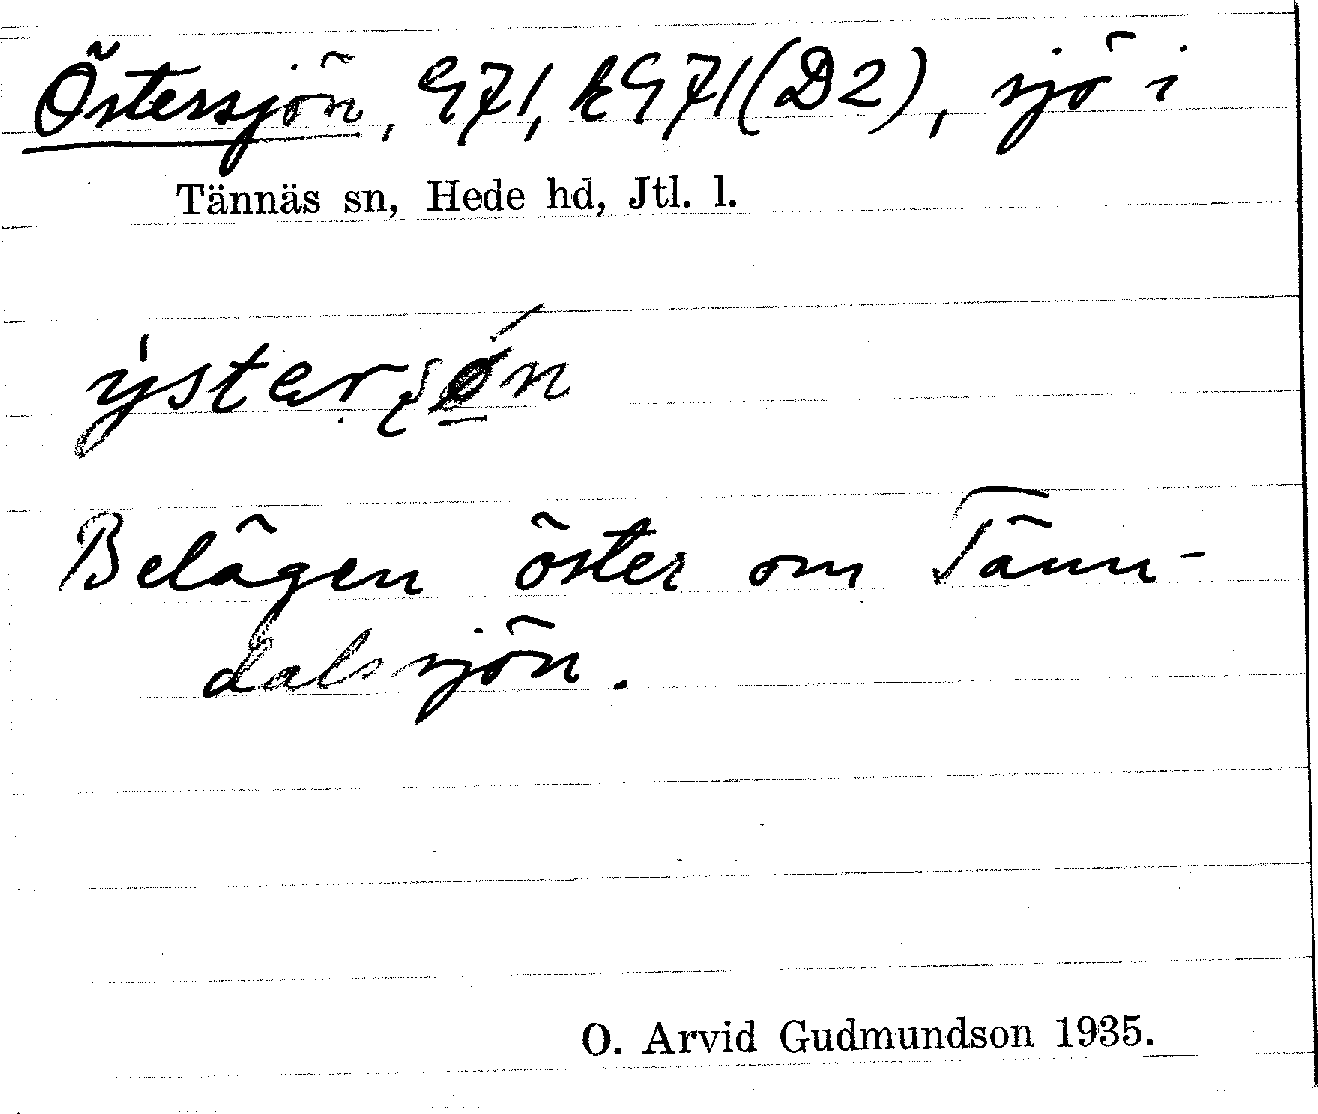 Östersjön, G71, kG71(D2), sjö i
Tännäs sn, Hede hd, Jtl. l.
Belägen öster om Tänn-
dalssjön.
O. Arvid Gudmundson 1935.